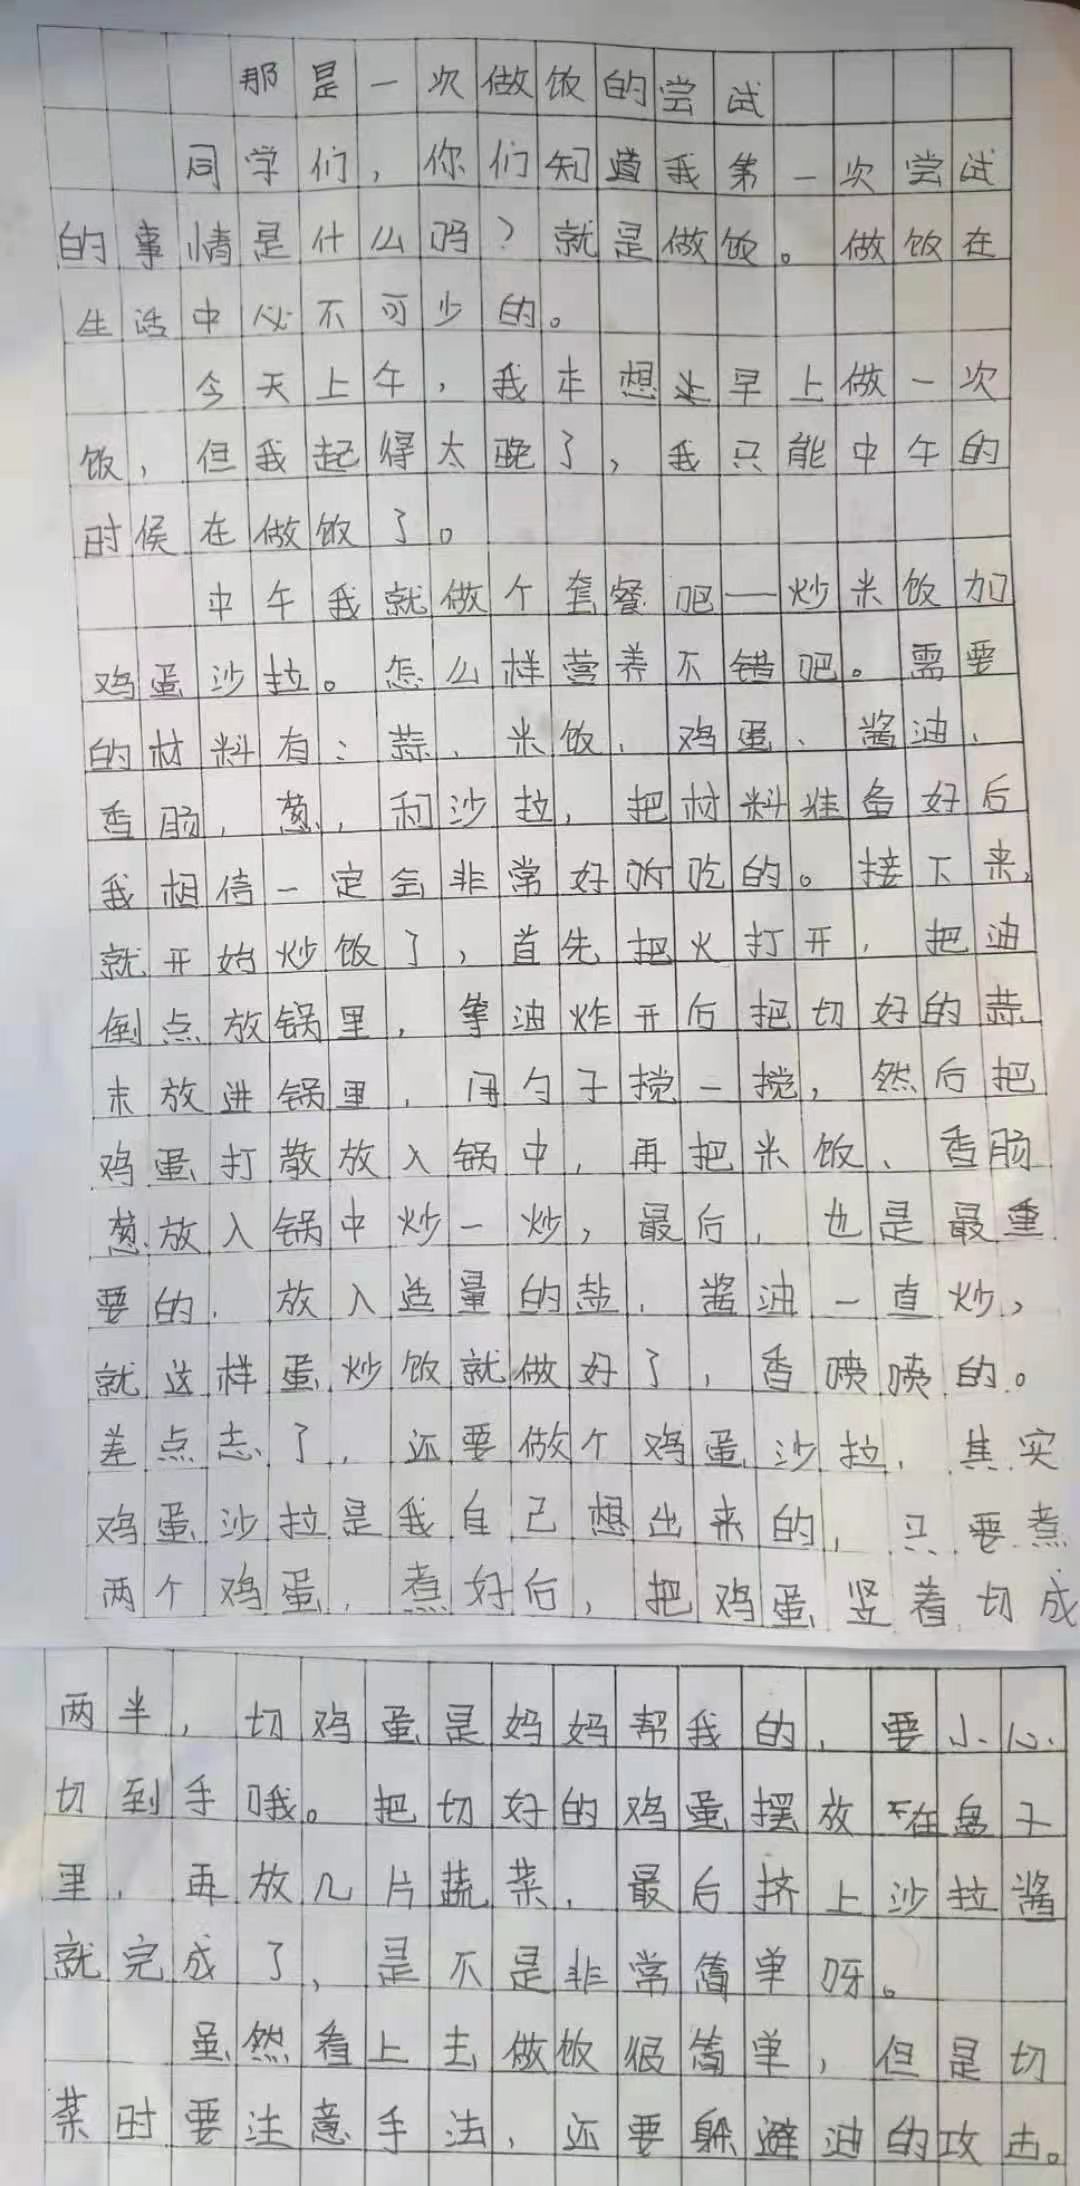 那是一次做饭的尝试
同学们，你们知道我第一次尝试
的事情是什么吗？就是做饭。做饭在
生活中必不可少的。
今天上午，我本想早上做一次
饭，但我起得太晚了，我只能中午的
时侯在做饭了。
中午我就做个套餐吧——炒米饭加
鸡蛋沙拉。怎么样营养不错吧。需要
的材料有：蒜、米饭、鸡蛋、酱油、
香肠，葱，和沙拉，把材料准备好后
我相信一定会非常好吃的。接下来，
就开始炒饭了，首先把火打开，把油
倒点放锅里，等油炸开后把切好的蒜
末放进锅里，用勺子搅一搅，然后把
鸡蛋打散放入锅中，再把米饭、香肠
葱放入锅中炒一炒，最后，也是最重
要的，放入适量的盐、酱油一直炒，
就这样蛋炒饭就做好了，香喷喷的。
差点忘了，还要做个鸡蛋沙拉，其实
鸡蛋沙拉是我自己想出来的，只要煮
两个鸡蛋，煮好后，把鸡蛋竖着切成
两半，切鸡蛋是妈妈帮我的，要小心
切到手哦。把切好的鸡蛋摆放在盘子
里，再放几片蔬菜，最后挤上沙拉酱
就完成了，是不是非常简单呀。
虽然看上去做饭很简单，但是切
菜时要注意手法，还要躲避油的攻击。